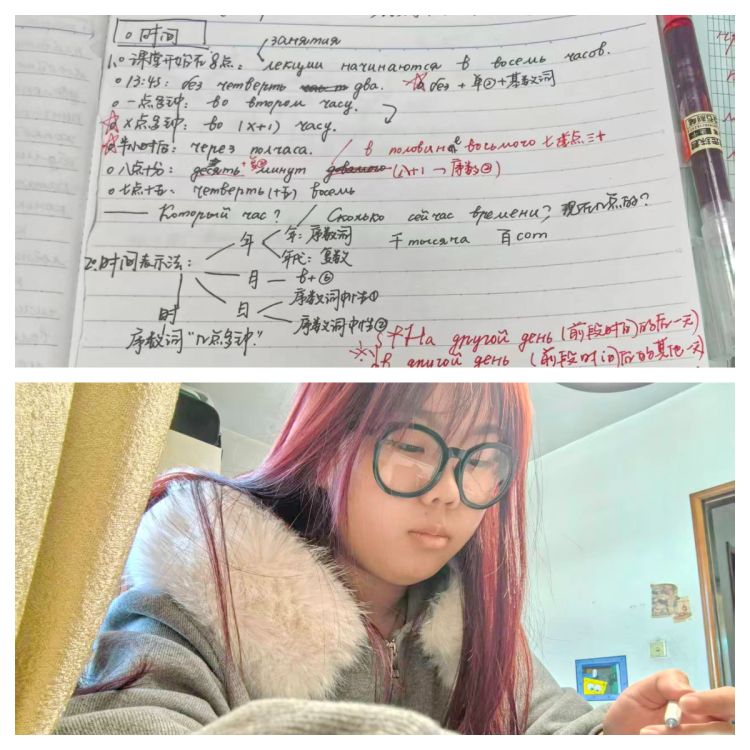 。时间
занятия
1.。课堂开始在8点: лекции начинаются в восемь часов.
。13:45: без четверть два. ☆ без + 单① + 基数词
。一点多钟: во втором часу.
☆ X点多钟: во (x+1) часу.
☆ 半小时后: через полчаса. / в половине восьмого 七点三十
。八点十分: десять минут (x+1 → 序数②)
。七点十五: четверть (十五) восемь
—— Который час? / Сколько сейчас времени? 现在几点的?
年 年: 序数词 千 тысяча 百 сот
2.。时间表示法: 年代: 复数
月 — в+⑥
日 序数词中性①
时 序数词中性②
序数词 "几点多钟."
※ { На другой день (前段时间的后一天)
в другой день (前段时间后的其他一天)